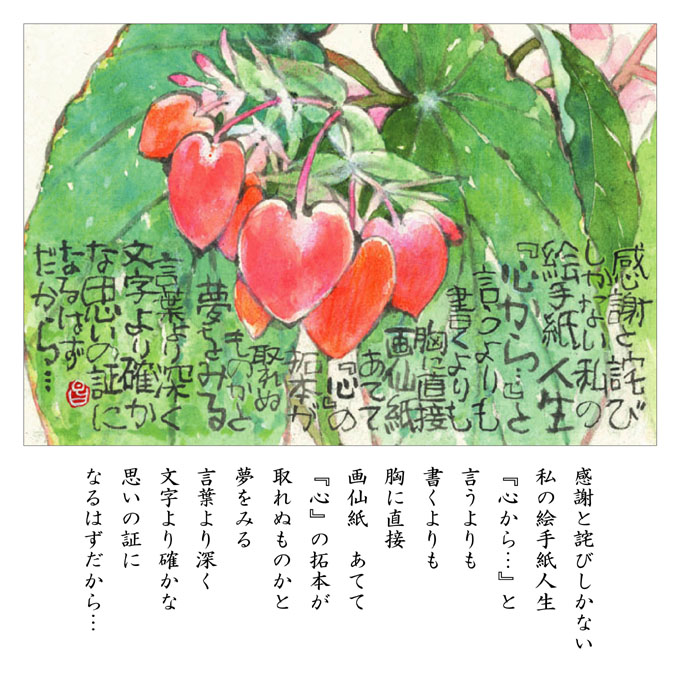 感謝と詫び
しかない私の
絵手紙人生
『心から…』と
言うよりも
書くよりも
胸に直接
画仙紙
あてて
『心』の
拓本が
取れぬ
ものかと
夢をみる
言葉より深く
文字より確か
な思いの証に
なるはず
だから…
感謝と詫びしかない
私の絵手紙人生
『心から…』と
言うよりも
書くよりも
胸に直接
画仙紙　あてて
『心』の拓本が
取れぬものかと
夢をみる
言葉より深く
文字より確かな
思いの証に
なるはずだから…